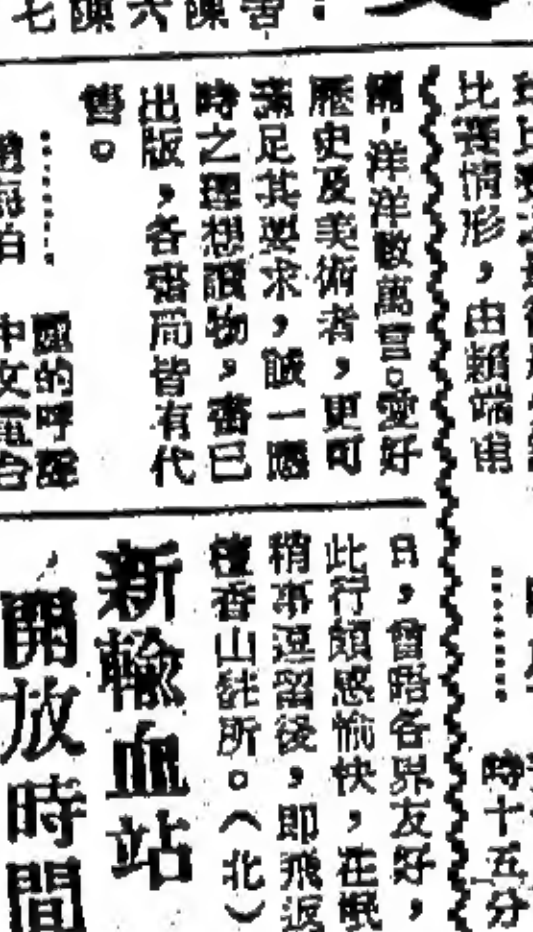 七陳六陳善：
比賽情形，由賴端甫
醐，洋洋數萬言。愛好
歷史及美術者，更可
滿足其要求，誠一應
時之理想讀物，書已
出版，各書局皆有代
售。
國的呼聲
中文電台
時十五分
日，曾晤各界友好，
此行頗感愉快，在岷
稍事逗留後，即飛返
檀香山註所。（北）
新輸血站
開放時間